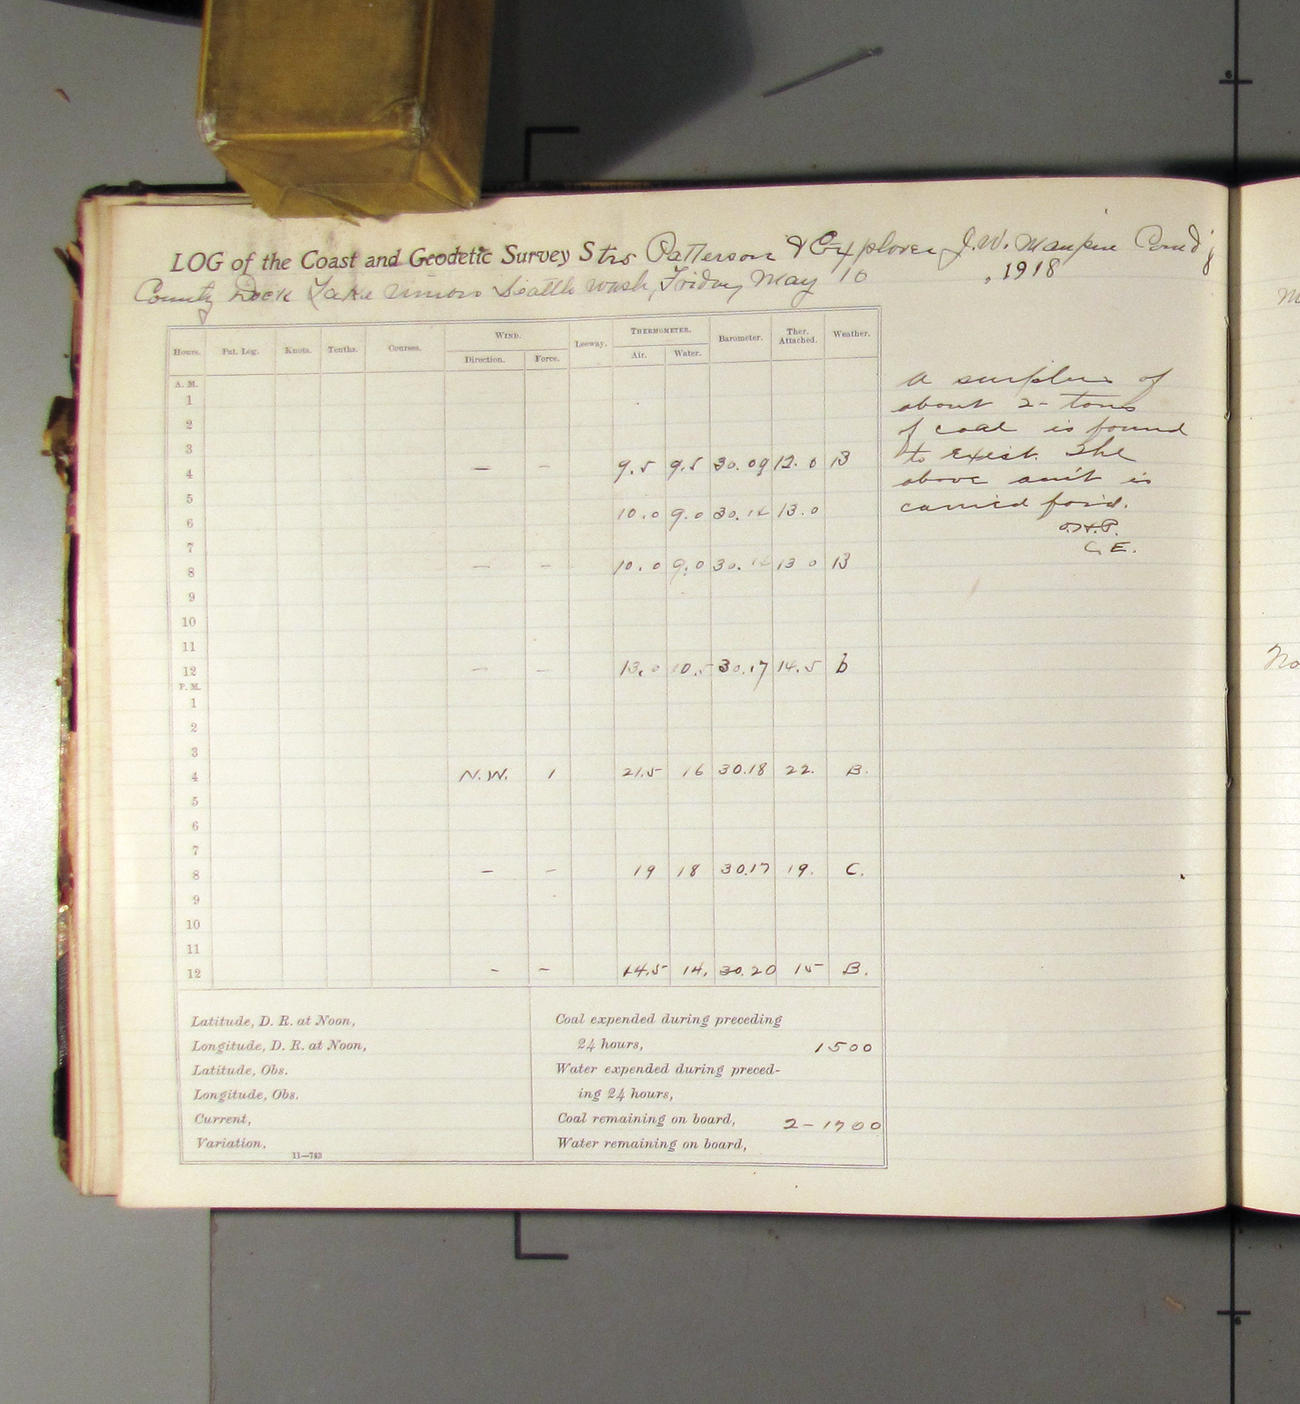 LOG of the Coast and Geodetic Survey Strs Patterson & Explorer J.W. Maupin Comd'g
County Dock Lake Union Seattle Wash, Friday May 10, 1918
Hours. Pat. Log. Knots. Tenths. Courses. WIND. Leeway. THERMOMETER. Barometer. Ther. Attached. Weather.
Direction. Force. Air. Water.
A. M.
1
2
3
4 — – 9.5 9.5 30.09 12.0 B
5
6 10.0 9.0 30.14 13.0
7
8 — – 10.0 9.0 30.14 13 0 B
9
10
11
12 — – 13.0 10.5 30.17 14.5 b
P. M.
1
2
3
4 N.W. 1 21.5 16 30.18 22. B.
5
6
7
8 – – 19 18 30.17 19. C.
9
10
11
12 - – 14.5 14. 30.20 15 B.
Latitude, D. R. at Noon,
Longitude, D. R. at Noon,
Latitude, Obs.
Longitude, Obs.
Current,
Variation,
11—743
Coal expended during preceding
24 hours, 1500
Water expended during preced-
ing 24 hours,
Coal remaining on board, 2-1700
Water remaining on board,
A surplus of
about 2- tons
of coal is found
to exist. The
above am't is
carried for'd.
C.E.
No